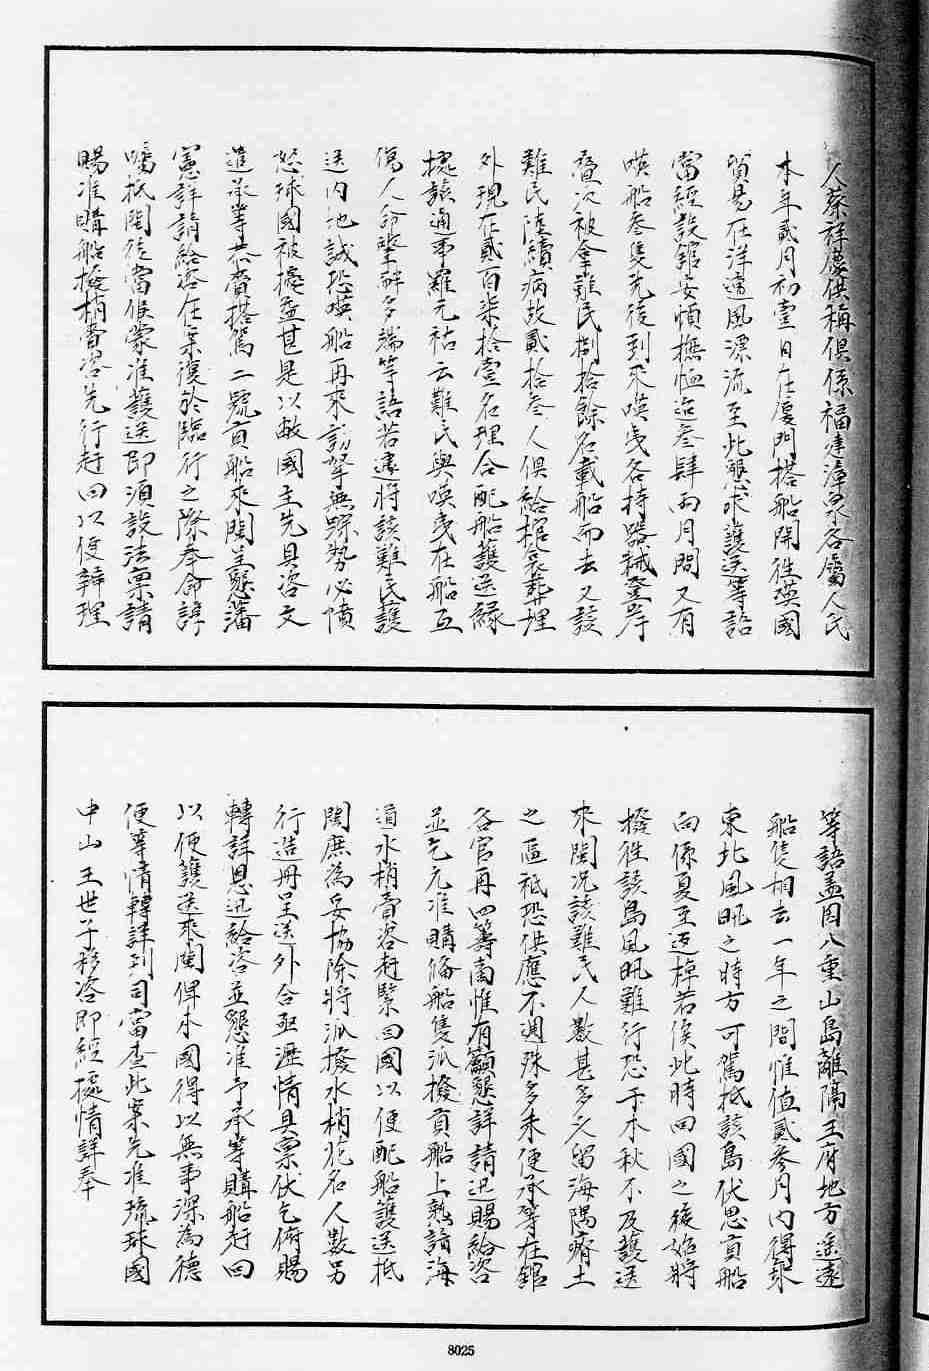 人蔡祥慶供稱俱係福建漳泉各屬人民
本年貳月初壹日在廈門搭船開徃𠸄國
貿易在洋遭風漂流至此懇求護送等語
當經設館安頓撫恤迨叁肆両月間又有
𠸄船叁隻先後到來𠸄夷各持器械登岸
疊次被拿難民捌拾餘名載船而去又發
難民陸續病故貳拾叁人俱給棺衾葬埋
外現在貳百柒拾壹名理合配船護送緣
據該通事羅元祜云難民與𠸄夷在船互
傷人命釁觧多端等語若遽將該難民護
送內地誠恐𠸄船再來訪拏無踪勢必憤
怒球國被擾益甚是以敝國主先具咨文
遣承等恭賫搭駕二號貢船來閩呈懇藩
憲詳請給咨在案復於臨行之際奉命諄
囑抵閩後當候蒙准護送即須設法禀請
賜准購船撥梢賫咨先行赶回以便辦理
等語葢因八重山島離隔王府地方遙遠
船隻相去一年之間惟值貳叁月內得乘
東北風帆之時方可駕抵該島伏思貢船
向係夏至迈棹若俟此時回國之後始將
撥徃該島風帆難行恐于本秋不及護送
來閩况該難民人數甚多久留海隅瘠土
之區祇恐供應不週殊多未便承等在舘
各官再四籌商惟有籲懇詳請迅賜給咨
並乞允准購俻船隻派撥貢船上熟諳海
道水梢賫咨赶緊回國以便配船護送抵
閩庶為妥協除將派撥水梢花名人數另
行造冊呈送外合亟瀝情具禀伏乞俯賜
轉詳恩迅給咨並懇准予承等購船赶回
以便護送來閩俾本國得以無事深為德
便等情轉詳到司當查此案先准琉球國
中山王世子移咨即經據情詳奉
8025